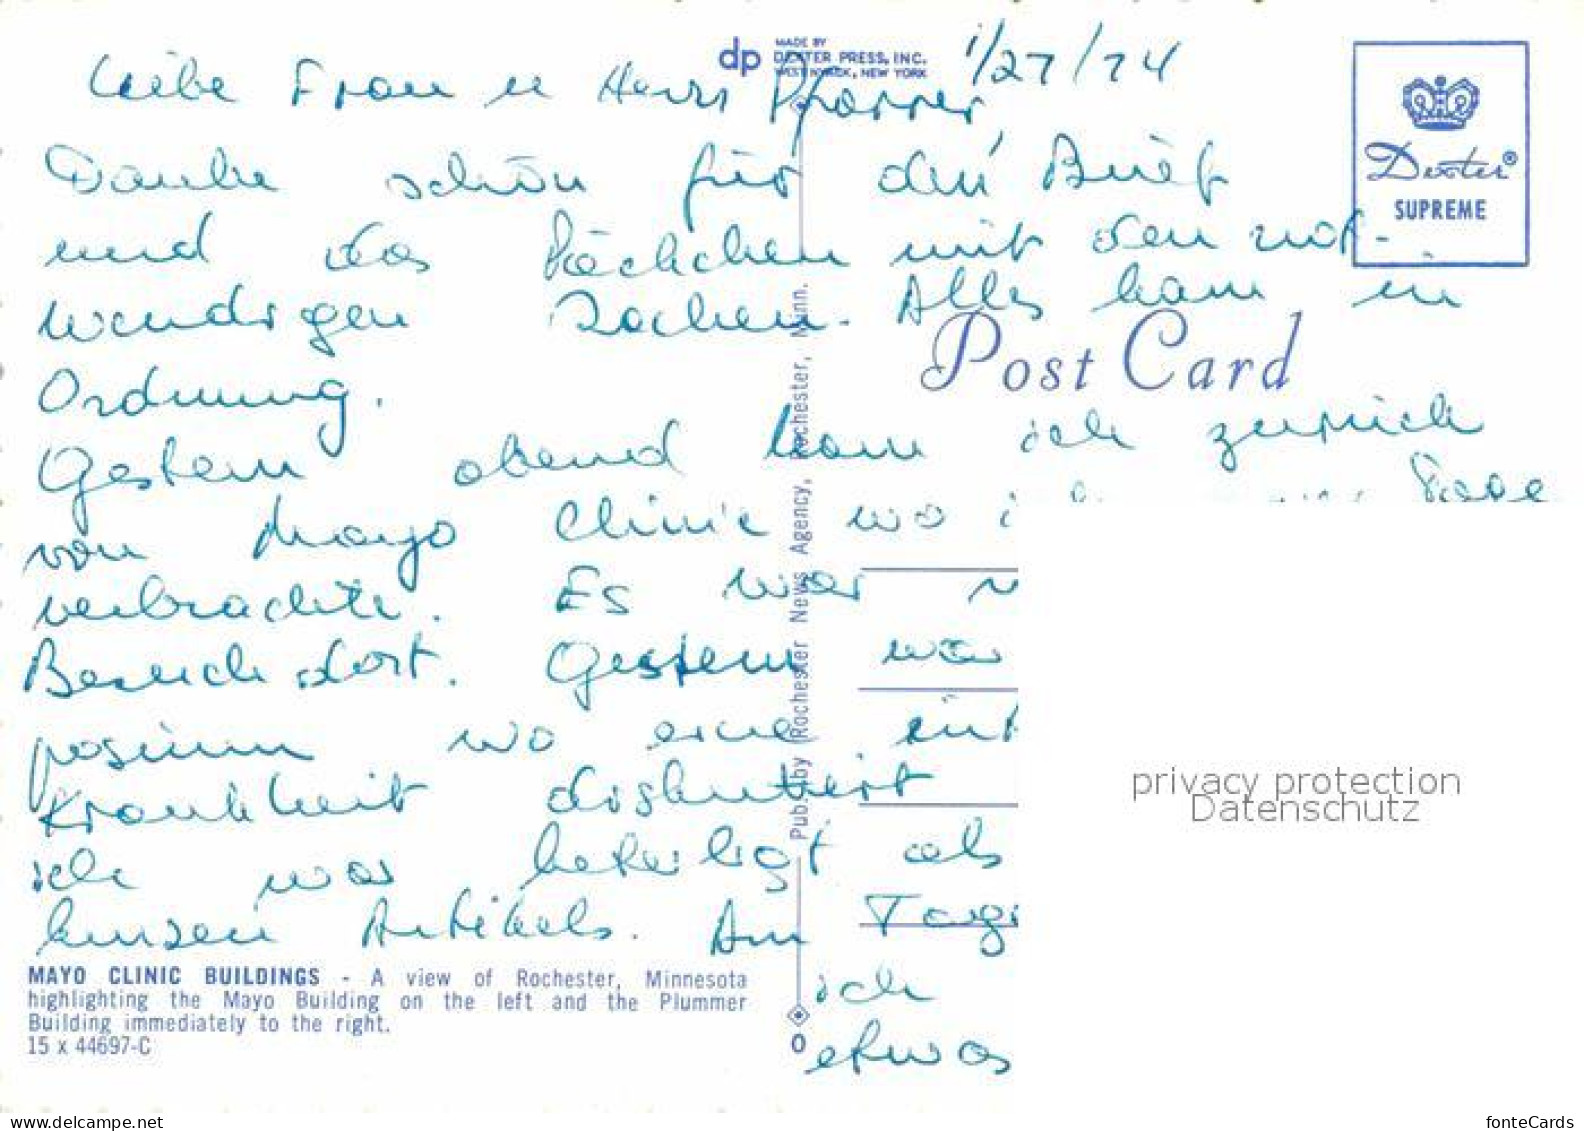 dp MADE BY
DEXTER PRESS, INC.
WEST NYACK, NEW YORK
1/27/74
Liebe Frau u Herr Pfarrer,
Danke schön für den Brief
und das Päckchen mit den not-
wendigen Sachen. Alles kam in
Ordnung.
Dexter®
SUPREME
Post Card
Gestern abend kam ich zurück
von Mayo Clinic wo Tage
verbrachte. Es war
Besuch dort. Gestern war
posium wo eine
Krankheit diskutiert
ich war beteiligt als
kurzen Artikels. Am Tag
ich
etwas
MAYO CLINIC BUILDINGS - A view of Rochester, Minnesota
highlighting the Mayo Building on the left and the Plummer
Building immediately to the right.
15 x 44697-C
Pub. by Rochester News Agency, Rochester, Minn.
O
privacy protection
Datenschutz
www.delcampe.net
fonteCards